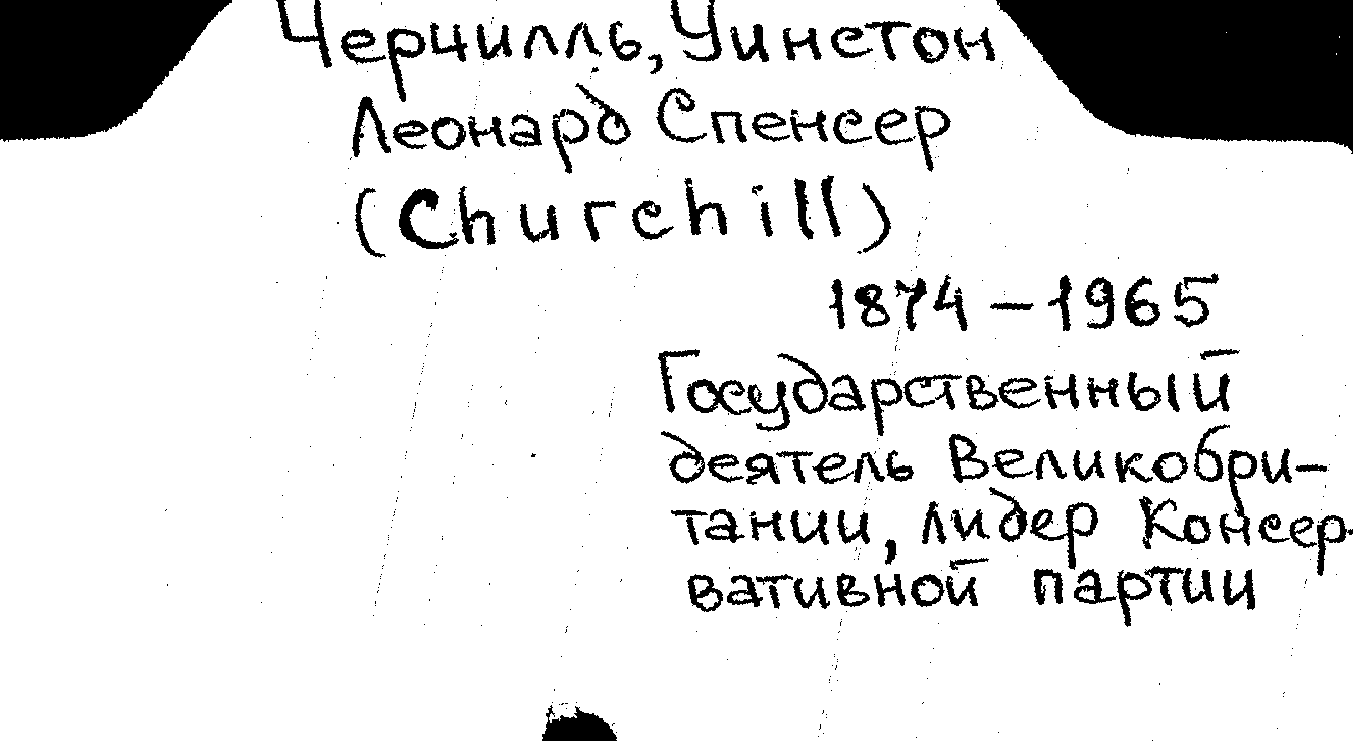 Черчилль, Уинстон
Леонард Спенсер
(Churchill)
1874 – 1965
Государственный
деятель Великобри-
тании, лидер Консер-
вативной партии